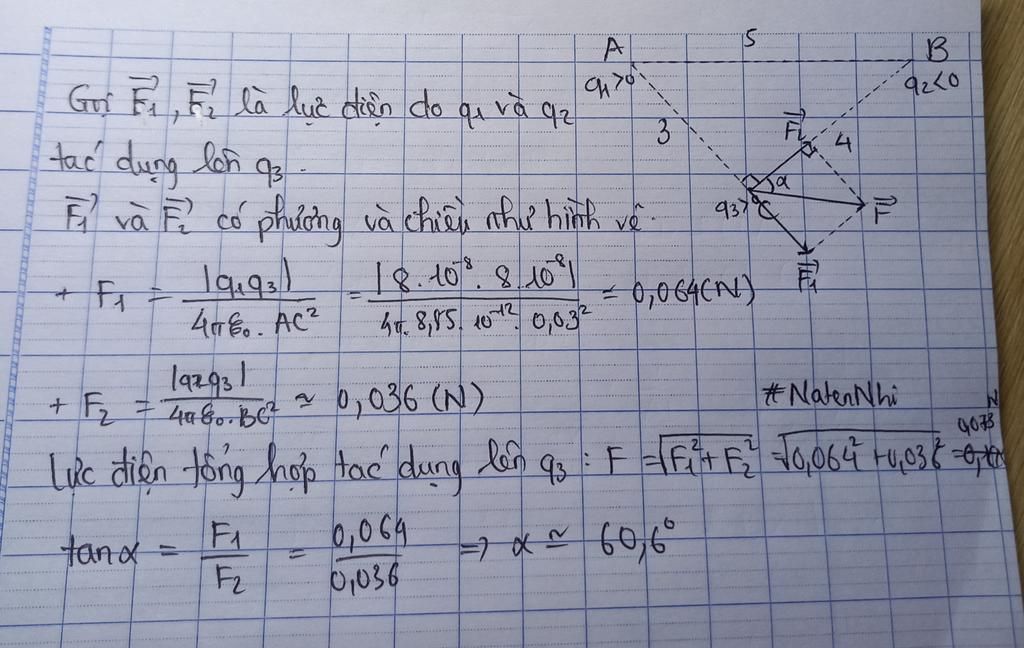 A 5 B
q₁>0 q₂<0
Gọi F₁→, F₂→ là lực điện do q₁ và q₂
3 F₂→ 4
tác dụng lên q₃.
α
q₃>0 C F→
F₁→ và F₂→ có phương và chiều như hình vẽ.
F₁→
+ F₁ = |q₁q₃| / 4πε₀.AC² = |8.10⁻⁸.8.10⁻⁸| / 4π.8,85.10⁻¹².0,03² = 0,064(N)
+ F₂ = |q₂q₃| / 4πε₀.BC² ≈ 0,036 (N)
#NatenNhi
Lực điện tổng hợp tác dụng lên q₃ : F = √(F₁² + F₂²) = √(0,064² + 0,036²) = 0,073 N
tanα = F₁ / F₂ = 0,064 / 0,036 => α ≃ 60,6°